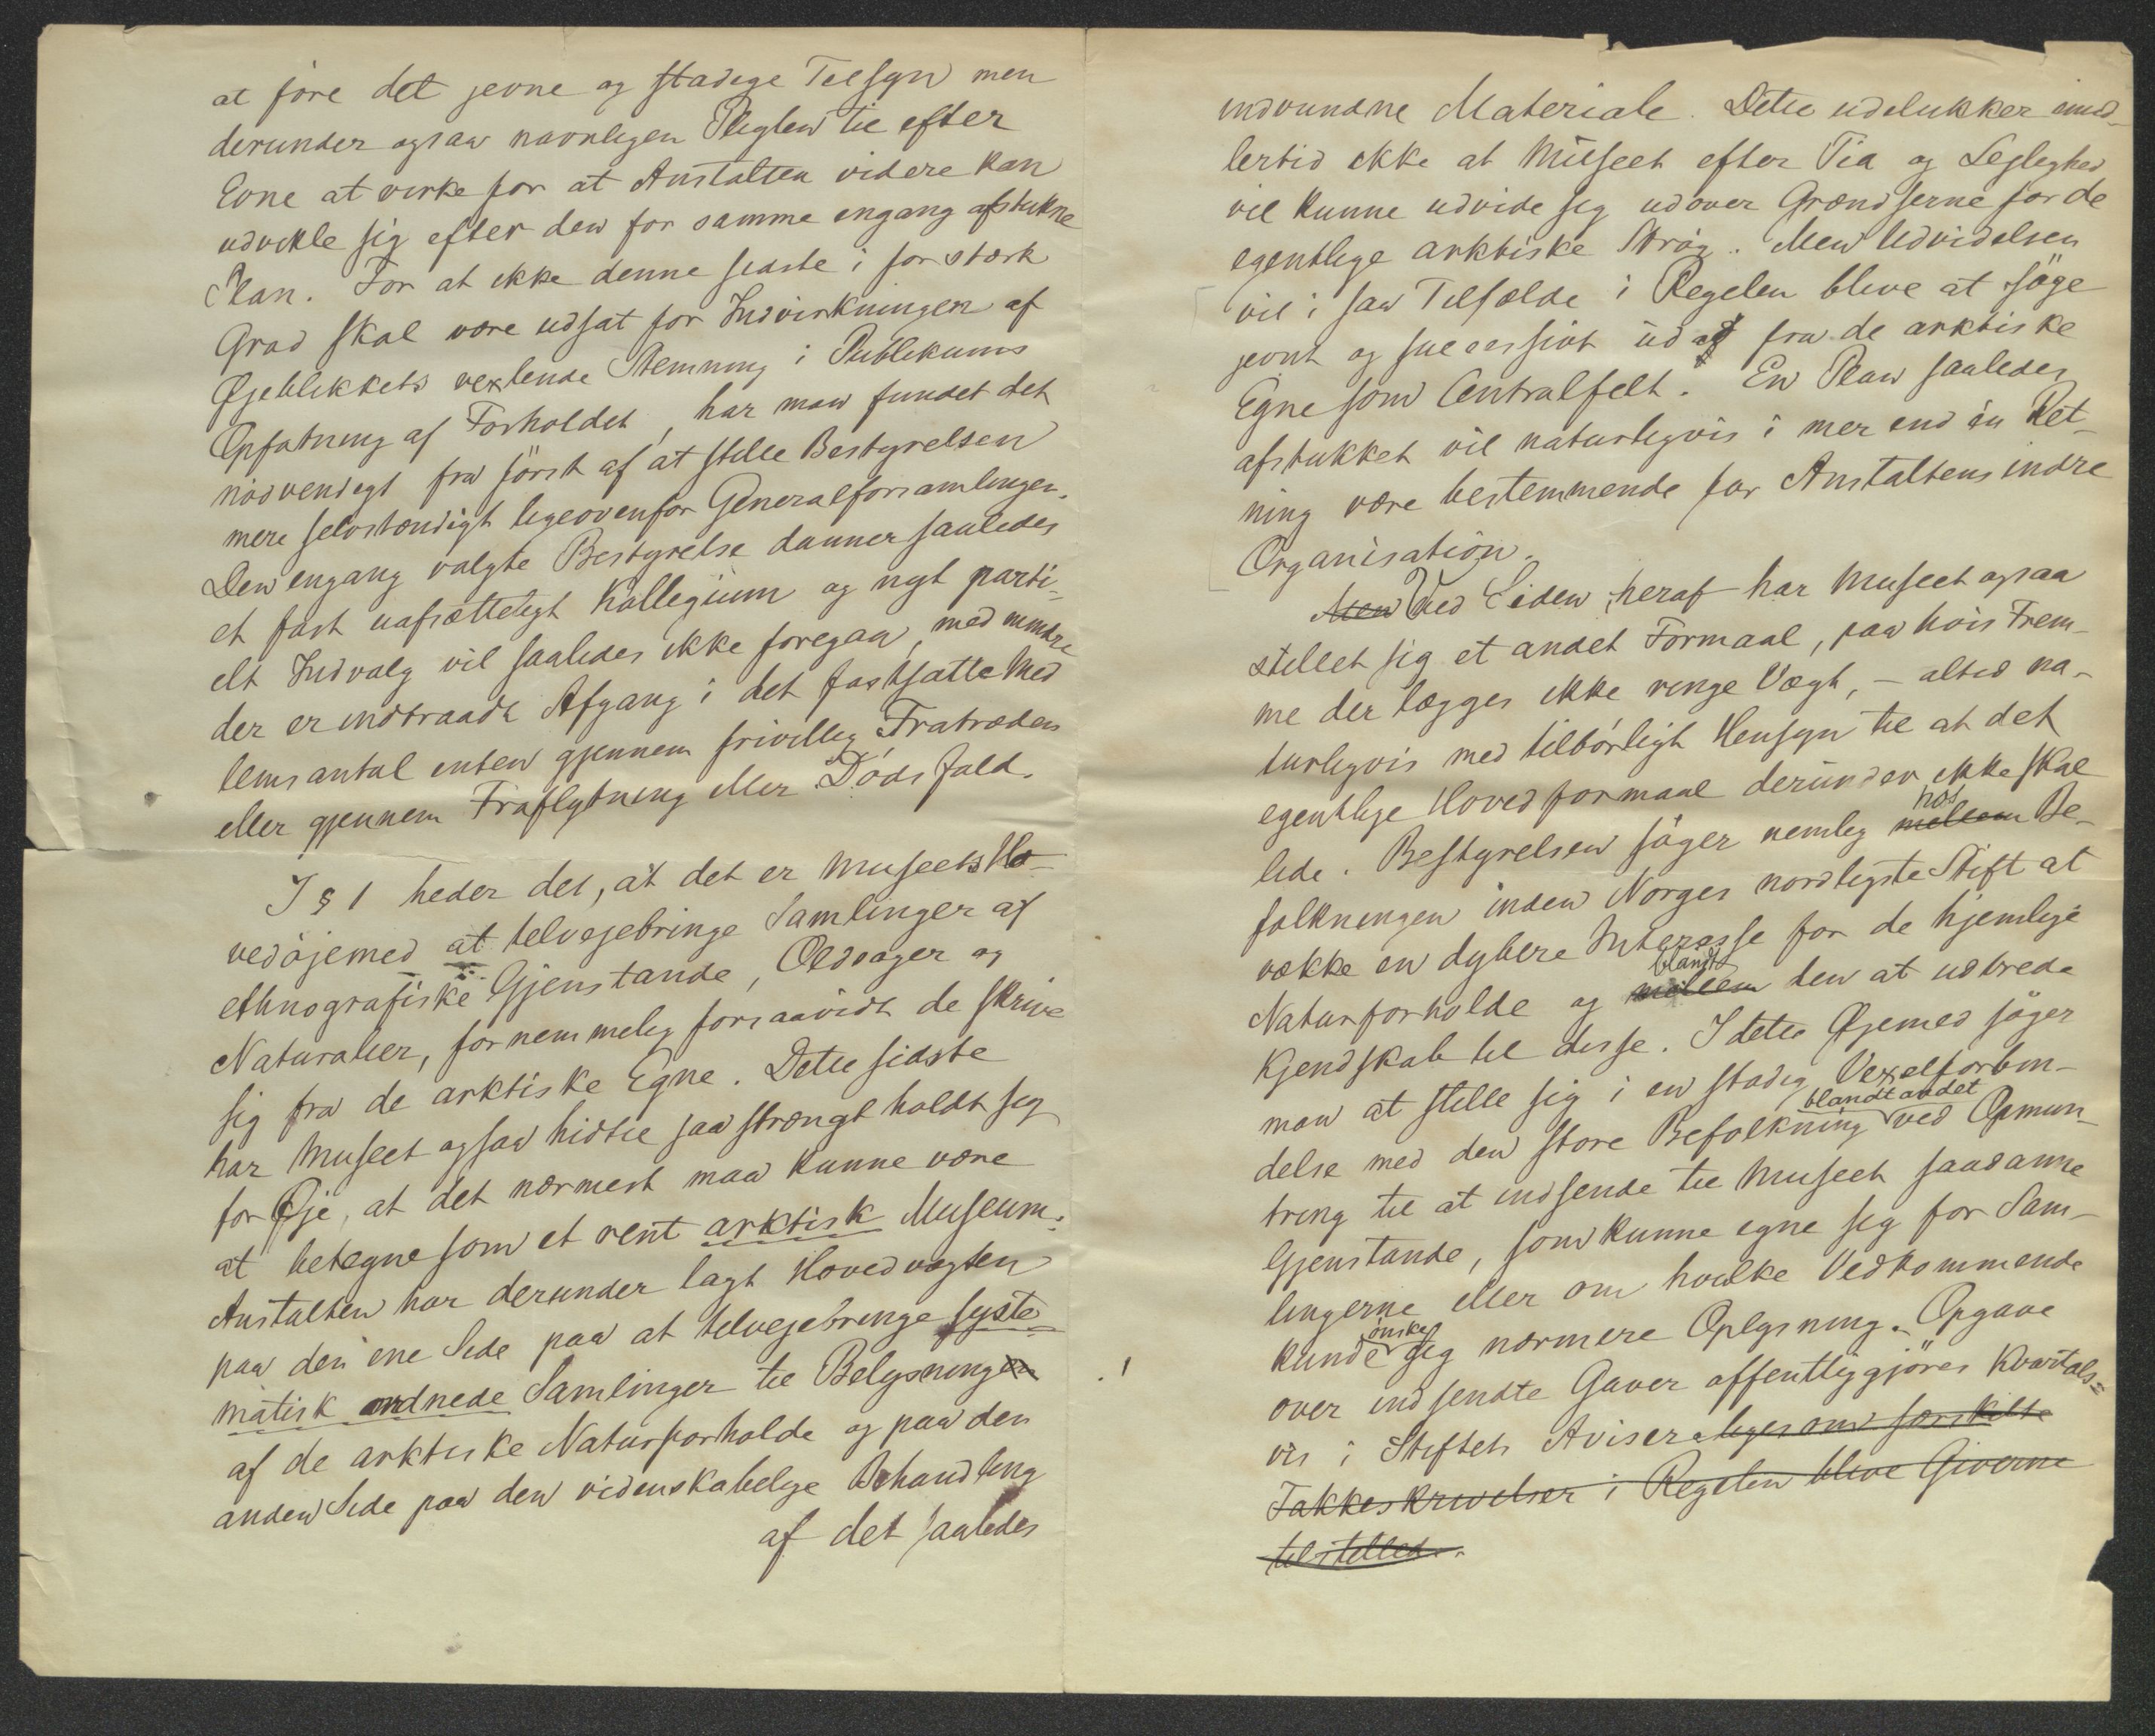 at føre det jevne og stadige Tilsyn men
derunder ogsaa navnligen Pligten til efter
Evne at virke for at Anstalten videre kan
udvikle sig efter den for samme engang afstukne
Plan. For at ikke denne sidste i for stærk
Grad skal være udsat for Indvirkningen af
Øjeblikkets vexlende Stemning i Publikums
Opfatning af Forholdet, har man fundet det
nödvendigt fra först af at stille Bestyrelsen
mere selvstændigt ligeovenfor Generalforsamlingen.
Den engang valgte Bestyrelse danner saaledes
et fast uafsætteligt Kollegium og nyt parti-
elt Indvalg vil saaledes ikke foregaa, med mindre
der er indtraadt Afgang i det fastsatte Med
lemsantal enten gjennem frivillig Fratræden
eller gjennem Fraflytning eller Dödsfald.
I § 1 heder det, at det er Museets Ho-
vedöjemed at tilvejebringe Samlinger af
ethnografiske Gjenstande, Oldsager og
Naturalier, fornemmelig forsaavidt de skrive
sig fra de arktiske Egne. Dette sidste
har Museet ogsaa hidtil saa strængt holdt sig
for Øje, at det nærmest maa kunne være
at betegne som et rent arktisk Museum:
Anstalten har derunder lagt Hovedvægten
paa den ene Side paa at tilvejebringe syste-
matisk ordnede Samlinger til Belysningen
af de arktiske Naturforholde og paa den
anden Side paa den videnskabelige Behandling
af det saaledes
indvundne Materiale. Dette udelukker imid-
lertid ikke at Museet efter Tid og Lejlighed
vil kunne udvide sig udover Grændserne for de
egentlige arktiske Strøg. Men Udvidelsen
vil i saa Tilfælde i Regelen blive at söge
jevnt og successivt ud af fra de arktiske
Egne som Centralfelt. En Plan saaledes
afstukket vil naturligvis i mer end én Ret-
ning være bestemmende for Anstaltens indre
Organisation.
Men Ved Siden heraf har Museet ogsaa
stillet sig et andet Formaal, paa hvis Frem-
me der lægges ikke ringe Vægt, - altid na-
turligvis med tilbörligt Hensyn til at det
egentlige Hovedformaal derunder ikke skal
hos
lide. Bestyrelsen söger nemlig mellem Be-
folkningen inden Norges nordligste Stift at
vække en dybere Interesse for de hjemlige
blandt
Naturforholde og mellem den at udbrede
Kjendskab til disse. I dette Øjemed söger
man at stille sig i en stadig Vexelforbin-
blandt andet
delse med den store Befolkning ved Opmun-
tring til at indsende til Museet saadanne
Gjenstande, som kunne egne sig for Sam-
lingerne eller om hvilke Vedkommende
önske
kunde sig nærmere Oplysning. Opgave
over indsendte Gaver offentliggjöres Kvartals-
vis i Stiftets Aviser ligesom særskilte
Takkeskrivelser i Regelen blive Giverne
tilstillede.